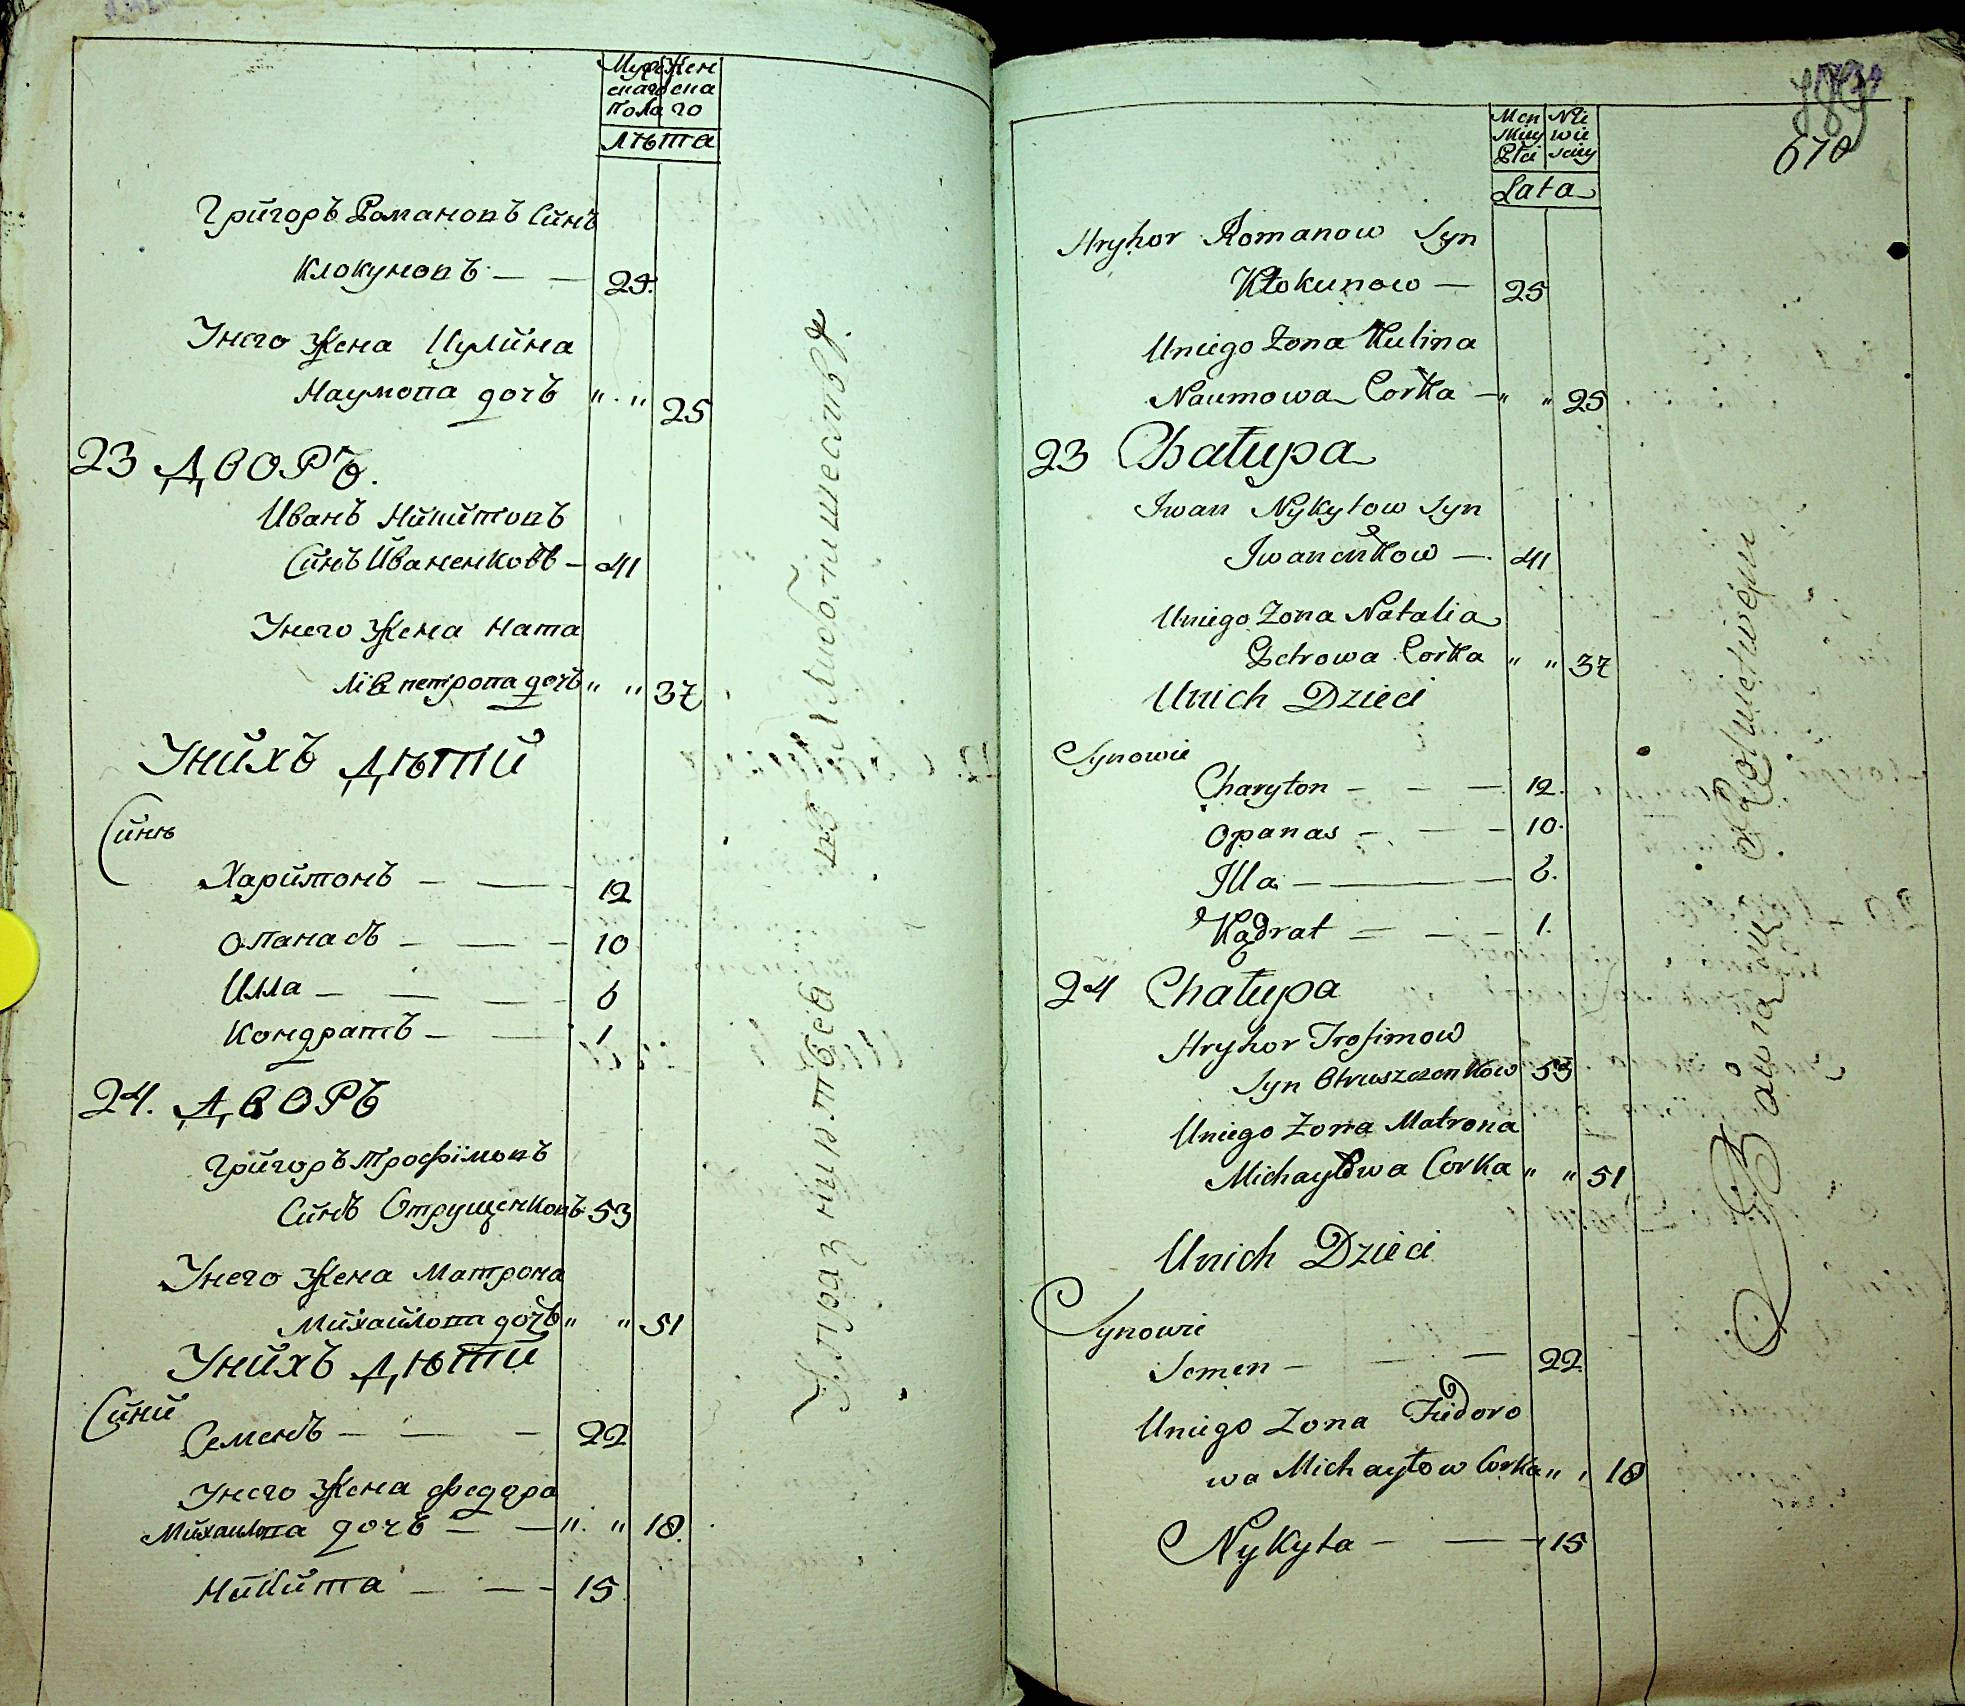 Муже Жен
скаго ска
пола го
Лѣта
Григоръ Романовъ Синъ
Клокуновъ — — 25.
Унего Жена Кулина
Наумова дочъ " " 25
23 ДВОРЪ.
Иванъ Никитовъ
Синъ Иваненковъ — 41
Унего Жена Ната
лiя петрова дочъ " " 37
Унихъ Дѣтй
Синѣ
Харитонъ — — 12
Опанасъ — — — 10
Илла — — — — 6
Кондратъ — — 1
24. ДВОРЪ
Григоръ Трофїмовъ
Синъ Отрущенковъ 53
Унего Жена Матрона
Михайлова дочъ " " 51
Унихъ Дѣти
Сини
Семенъ — — — 22
Унего Жена Федора
Михаилова дочъ — — " " 18.
Никита — — — 15
670
Męn Nie
skiey wie
Płci sciey
Lata
Hryhor Romanow Syn
Kłokunow — 25
Uniego Zona Kulina
Naumowa Corka — " " 25
23 Chałupa
Iwan Nykytow Syn
Iwanenkow — 41
Uniego Zona Natalia
Petrowa Corka " " 37
Unich Dzieci
Synowie
Charyton — — — 12.
Opanas — — — 10.
Illa — — — 6.
Kądrat — — — 1.
24 Chałupa
Hryhor Trofimow
Syn Otruszczenkow 53
Uniego Zona Matrona
Michayłowa Corka " " 51
Unich Dzieci
Synowie
Semen — — — 22
Uniego Zona Fiedoro
wa Michayłow Corka " " 18
Nykyta — — — 15